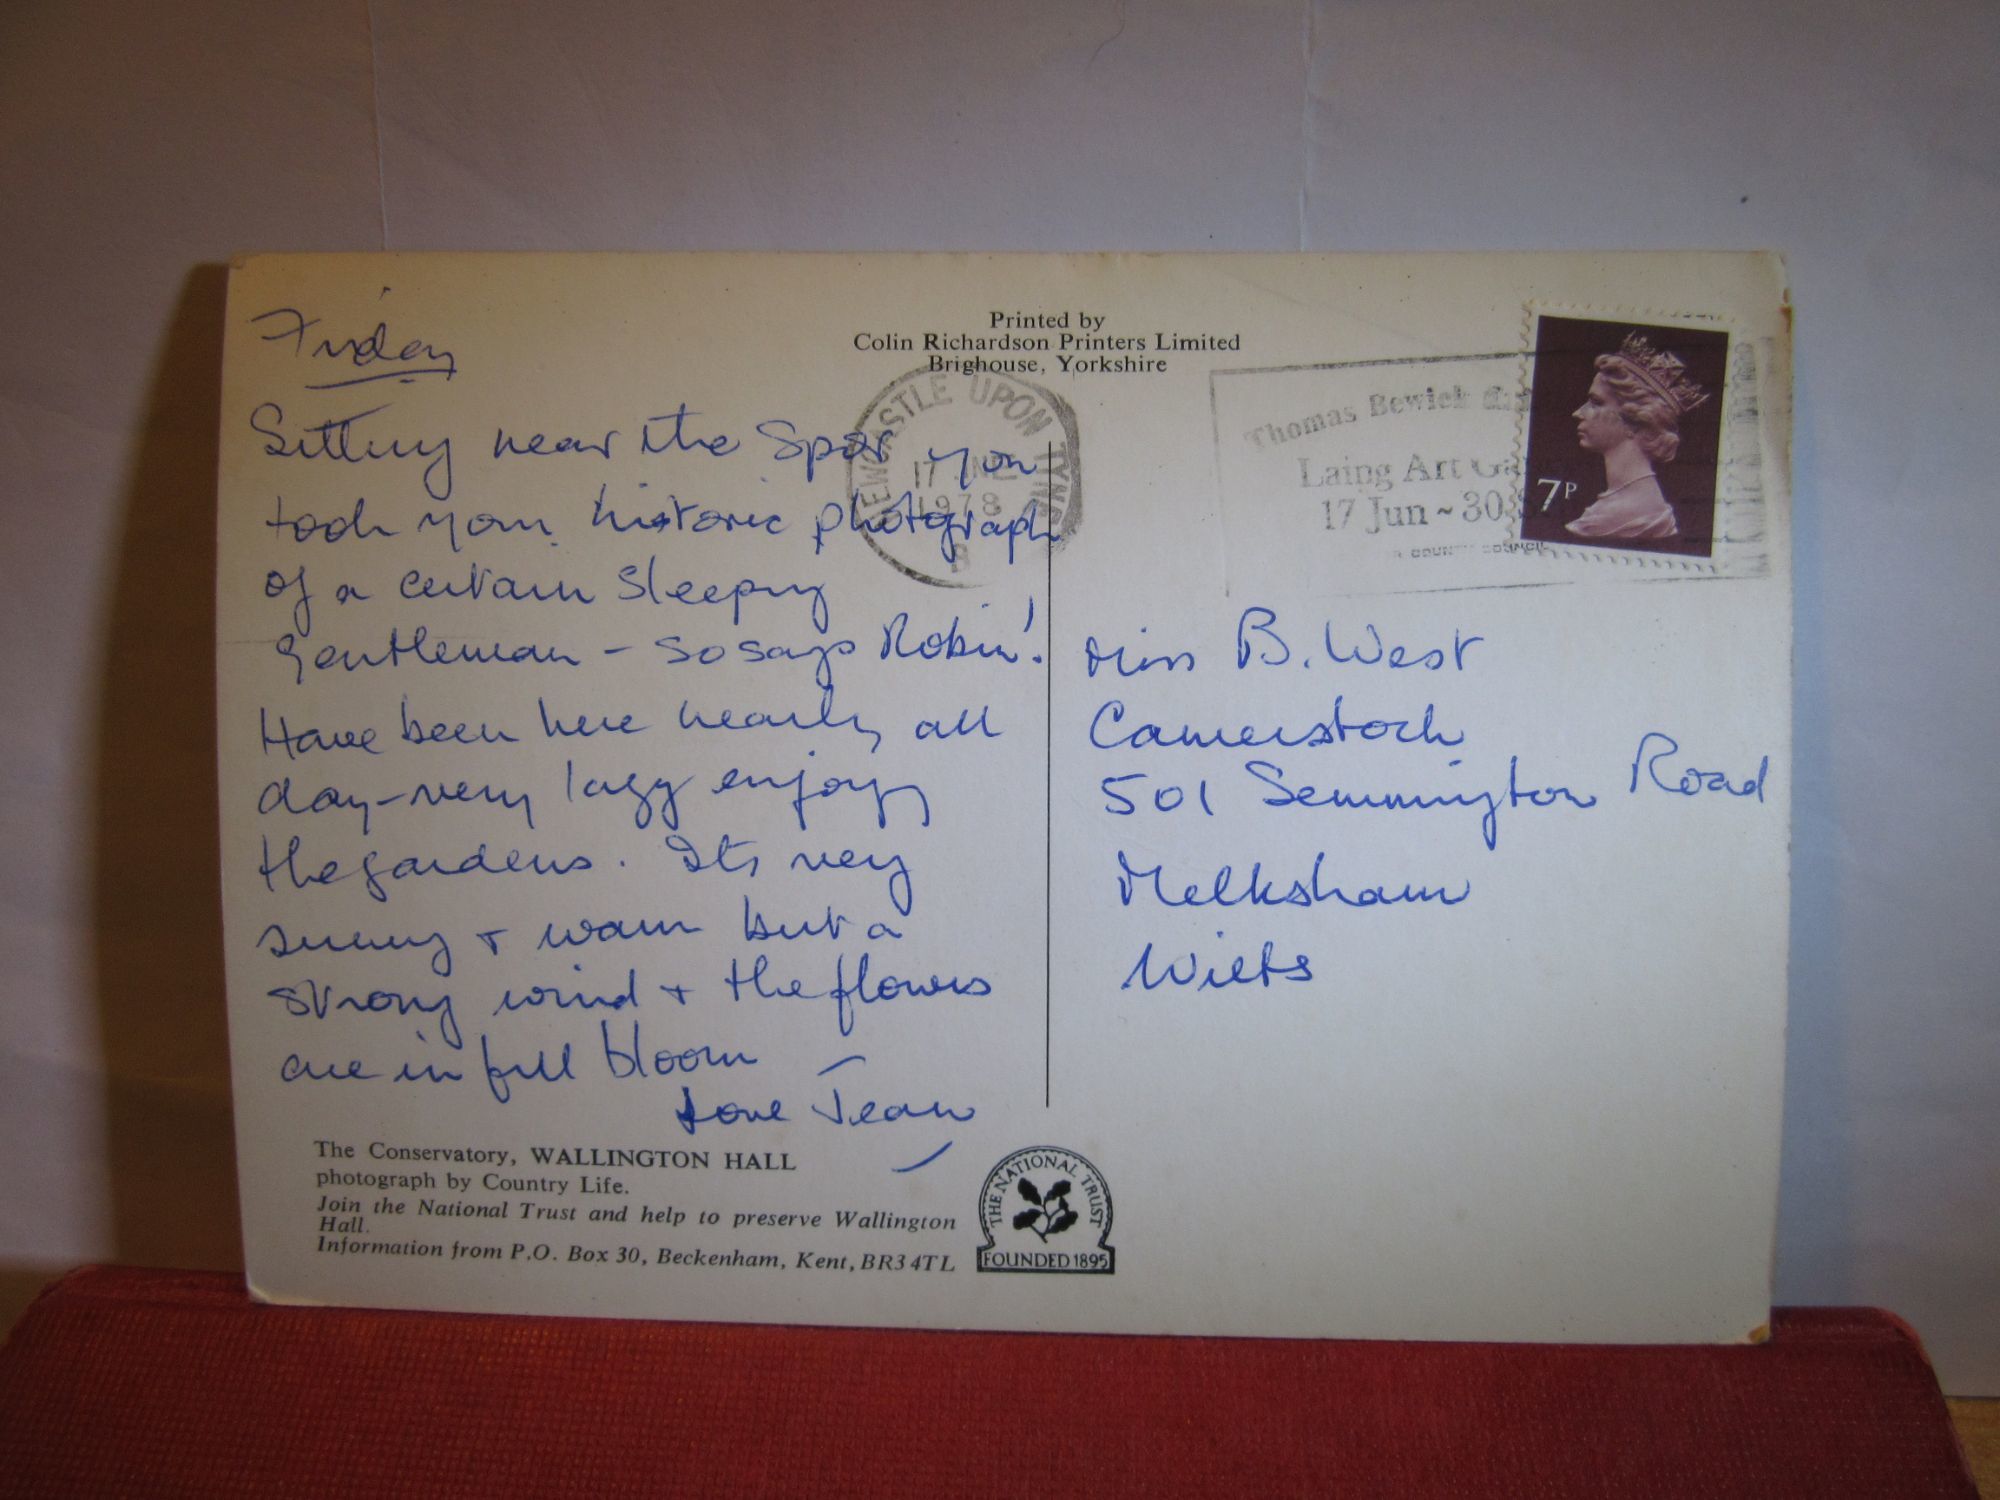 Friday
Sitting near the spot you
took your historic photograph
of a certain sleeping
gentleman - so says Robin!
Have been here nearly all
day - very lazy enjoying
the gardens. Its very
sunny + warm but a
strong wind + the flowers
are in full bloom
Love Jean
The Conservatory, WALLINGTON HALL
photograph by Country Life.
Join the National Trust and help to preserve Wallington
Hall.
Information from P.O. Box 30, Beckenham, Kent, BR3 4TL
THE NATIONAL TRUST
FOUNDED 1895
Printed by
Colin Richardson Printers Limited
Brighouse, Yorkshire
NEWCASTLE UPON TYNE
17 JNE
1978
B
Thomas Bewick
Laing Art
17 Jun ~ 30
COUNTY COUNCIL
7P
Miss B. West
Camerstock
501 Semmington Road
Melksham
Wilts